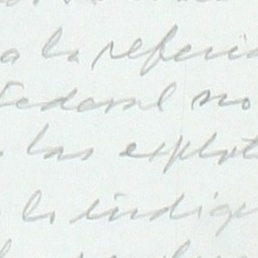 a la referi
Federal no
las explot
le indig